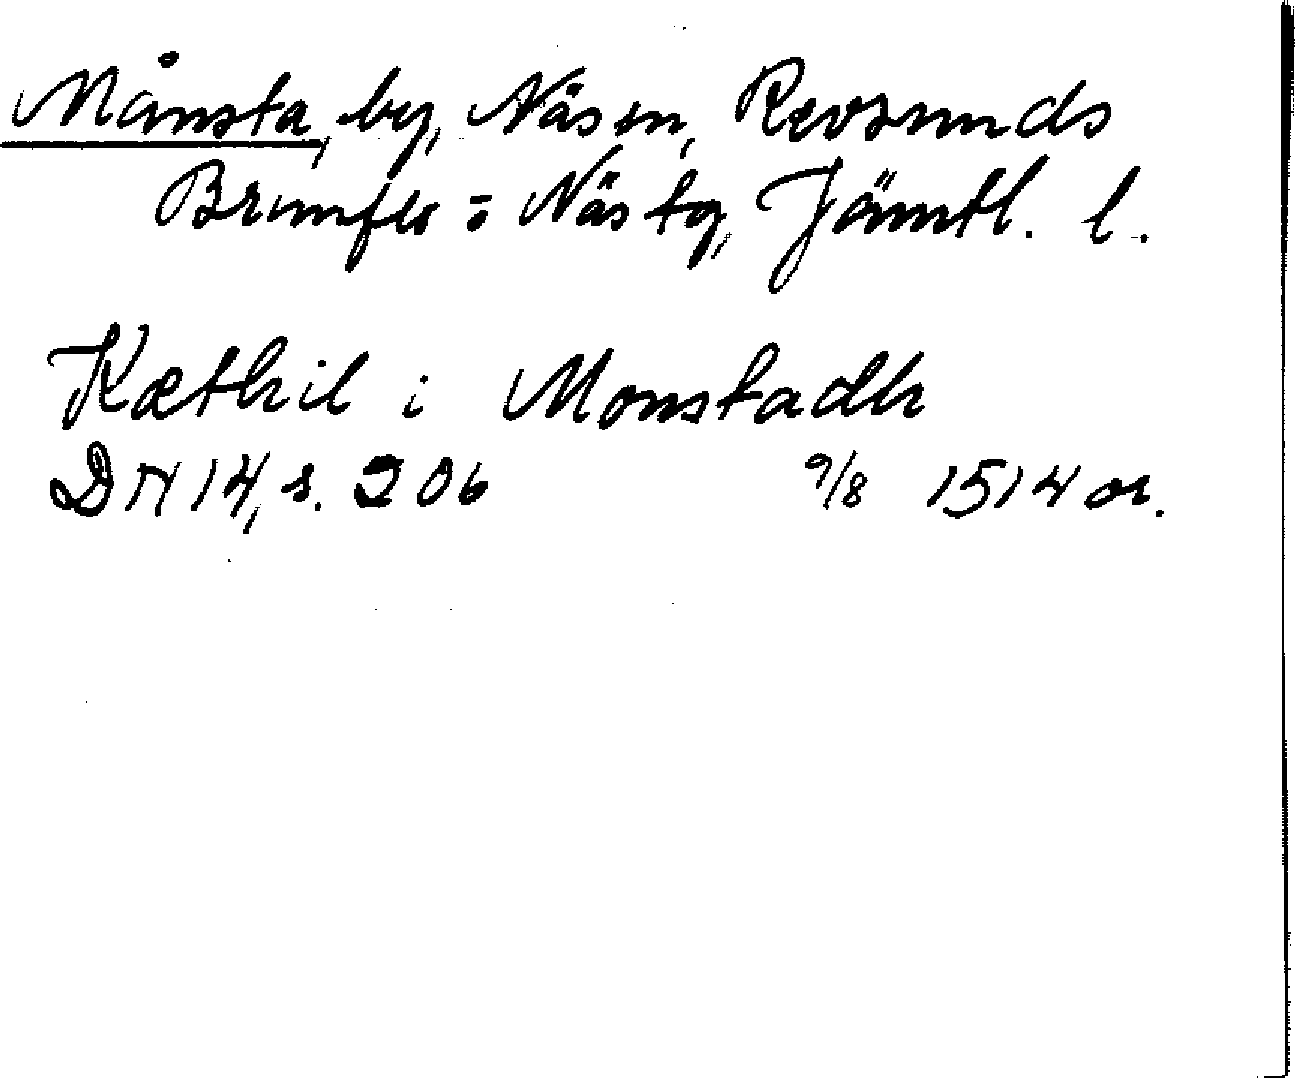 Månsta, by, Näs sn, Revsunds
Brunflo o Näs tg, Jämtl. l.
Kæthil i Monstadh
DN 14, s. 206 9/8 1514 or.